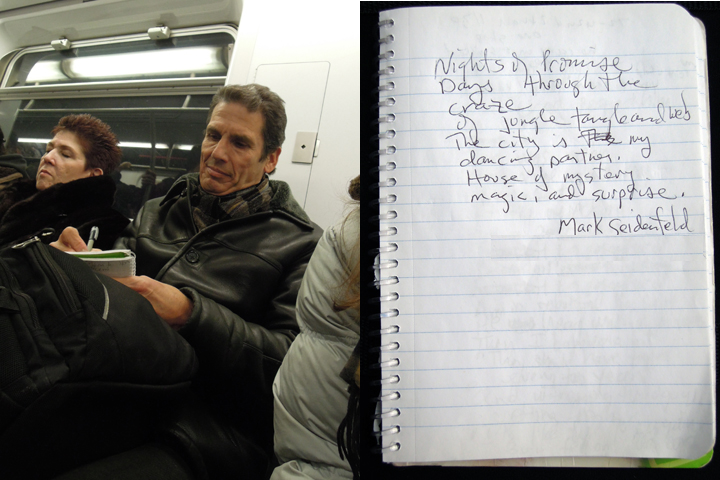 Nights of Promise
Days through the
craze
of jungle tangle and web
The city is my
dancing partner.
House of mystery
magic, and surprise.
Mark Seidenfeld